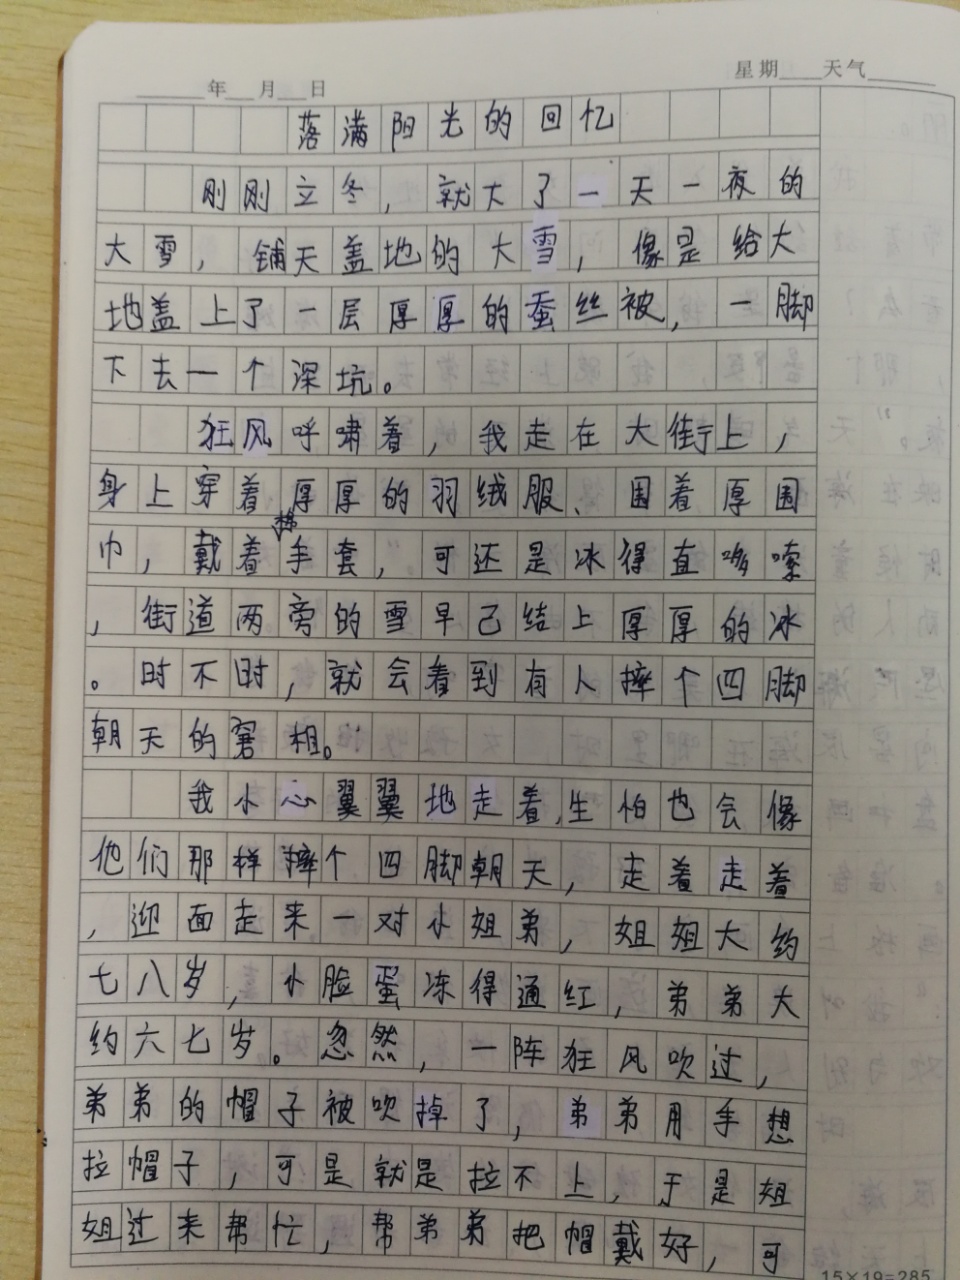 年 月 日 星期 天气
落满阳光的回忆
刚刚立冬，就大了一天一夜的
大雪，铺天盖地的大雪，像是给大
地盖上了一层厚厚的蚕丝被，一脚
下去一个深坑。
狂风呼啸着，我走在大街上，
身上穿着厚厚的羽绒服、围着厚围
巾，戴着棉手套，可还是冰得直哆嗦
，街道两旁的雪早已结上厚厚的冰
。时不时，就会看到有人摔个四脚
朝天的窘相。
我小心翼翼地走着,生怕也会像
他们那样摔个四脚朝天，走着走着
，迎面走来一对小姐弟，姐姐大约
七八岁，小脸蛋冻得通红，弟弟大
约六七岁。忽然，一阵狂风吹过，
弟弟的帽子被吹掉了，弟弟用手想
拉帽子，可是就是拉不上，于是姐
姐过来帮忙，帮弟弟把帽戴好，可
15×19=285